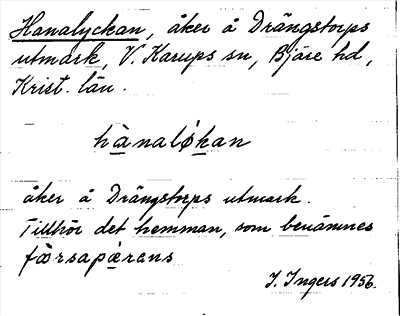 Hanalyckan, åker å Drängstorps
utmark, V. Karups sn, Bjäre hd,
Krist. län.
hànaló̱kan
åker å Drängstorps utmark.
Tillhör det hemman, som benämnes
fàrsapærens
I. Ingers 1956.